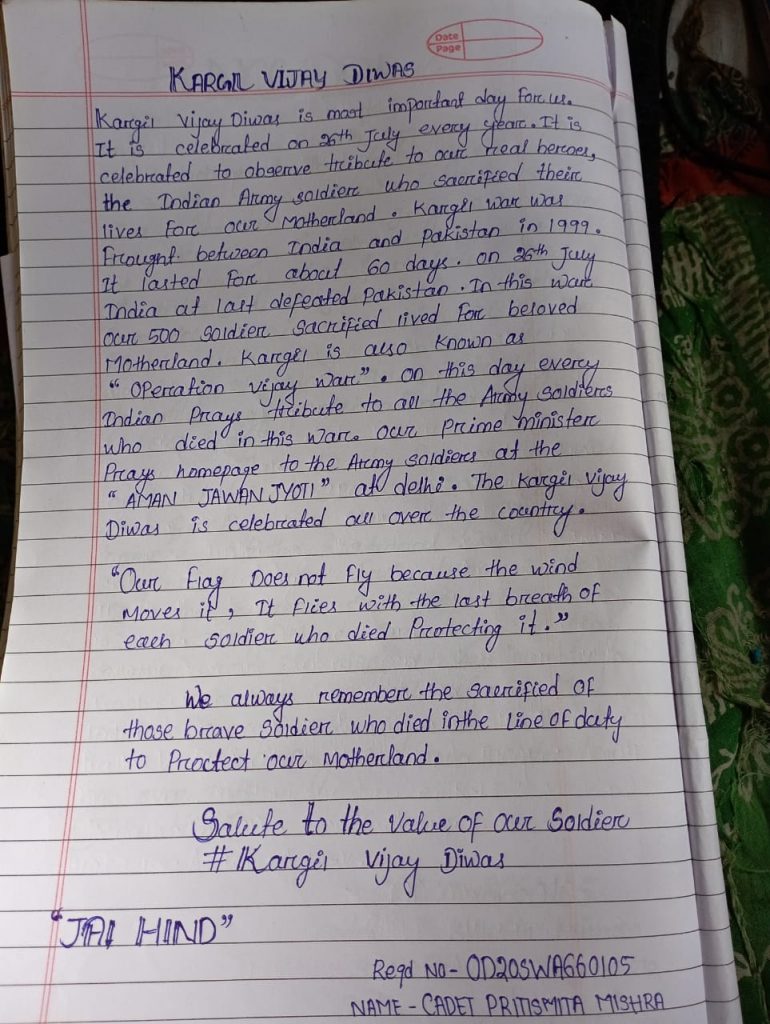 Date
Page
KARGIL VIJAY DIWAS
Kargil Vijay Diwas is most important day for us.
It is celebrated on 26th July every year. It is
celebrated to observe tribute to our real heroes,
the Indian Army soldier who sacrified their
lives for our Motherland. Kargil war was
Frought between India and Pakistan in 1999.
It lasted for about 60 days. on 26th July
India at last defeated Pakistan. In this war
our 500 soldier sacrified lived for beloved
Motherland. Kargil is also known as
"Operation vijay War". on this day every
Indian Prays tribute to all the Army soldiers
who died in this war. our prime minister
Prays homepage to the Army soldiers at the
"AMAN JAWAN JYOTI" at delhi. The Kargil Vijay
Diwas is celebrated all over the country.
"Our Flag Does not Fly because the wind
Moves it, It flies with the last breath of
each soldier who died Protecting it."
We always remember the sacrified of
those brave soldier who died in the Line of duty
to Proctect our Motherland.
Salute to the value of our Soldier
#Kargil Vijay Diwas
"JAI HIND"
Regd No- OD20SWA660105
NAME - CADET PRITISMITA MISHRA